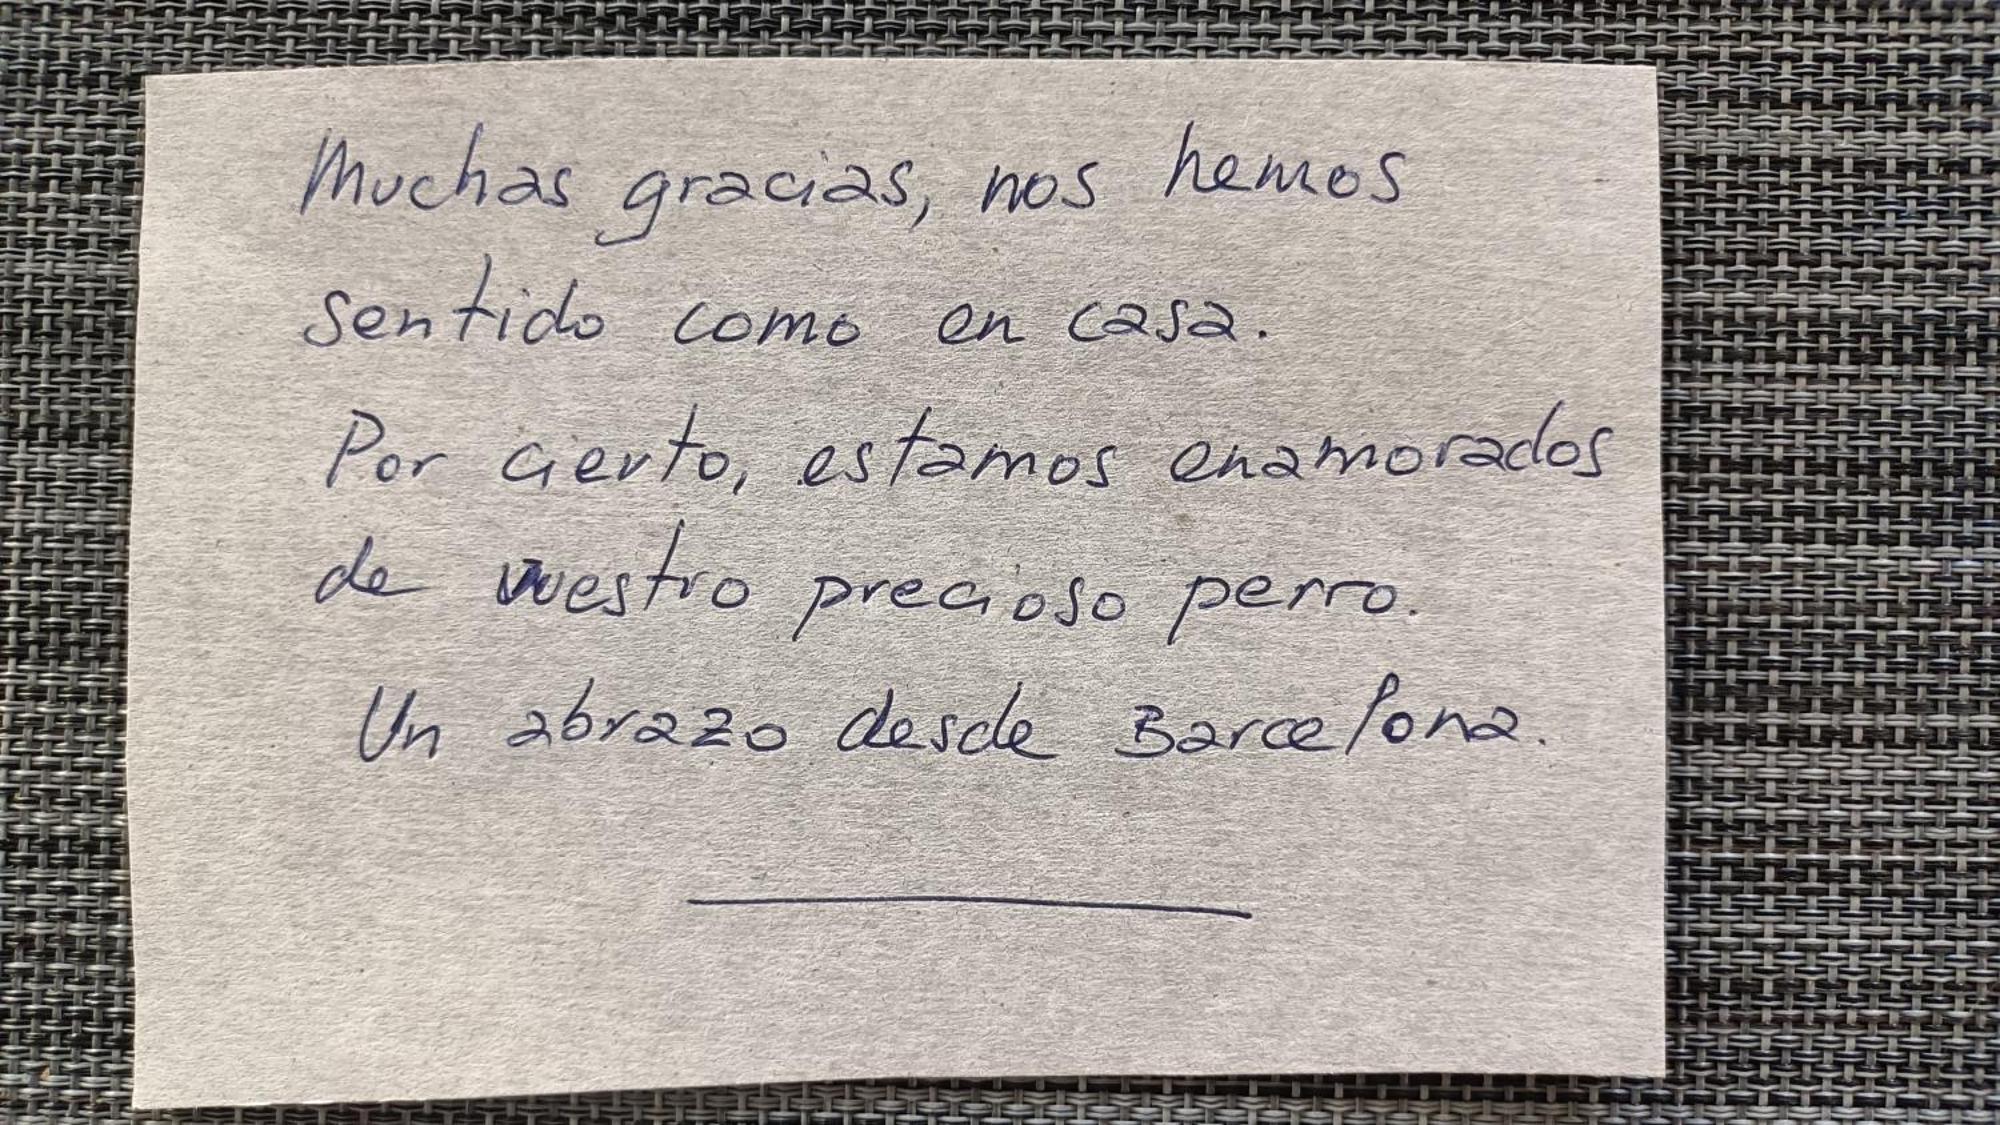 Muchas gracias, nos hemos
sentido como en casa.
Por cierto, estamos enamorados
de vuestro precioso perro.
Un abrazo desde Barcelona.